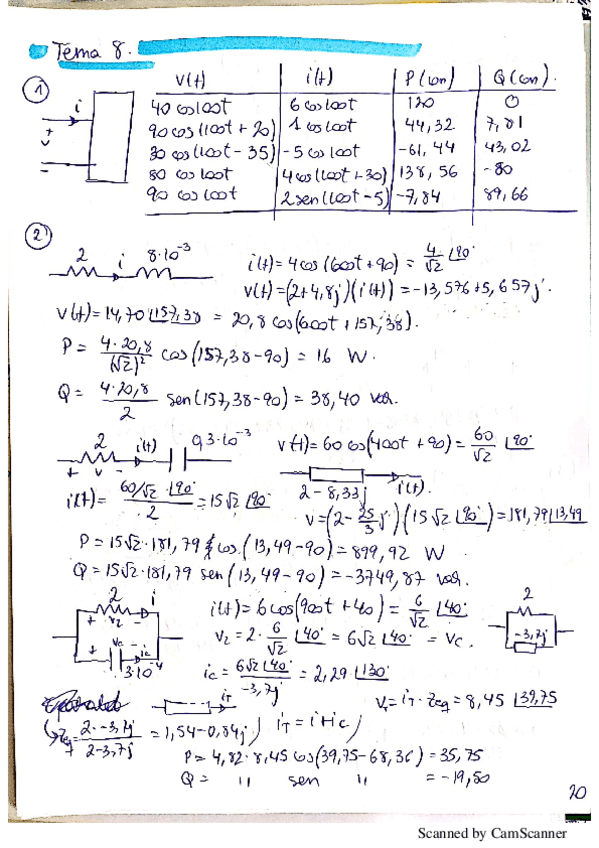 Tema 8.
v(t) i(t) P(con) Q(con)
1 i 40 cos 100t 6 cos 100t 120 0
+ v - 90 cos(100t + 20) 1 cos 100t 44,32 7,81
30 cos(100t - 35) -5 cos 100t -61,44 43,02
80 cos 100t 4 cos(100t +30) 138,56 -80
90 cos 100t 2 sen(100t -5) -7,84 89,66
2
2 i 8·10⁻³ i(t) = 4 cos(600t + 90) = 4/√2 ∠90°
v(t) = (2+4,8j)(i(t)) = -13,576 + 5,657j.
v(t) = 14,70 ∠157,38 = 20,8 cos(600t + 157,38).
P = 4·20,8/(√2)² cos(157,38-90) = 16 W.
Q = 4·20,8/2 sen(157,38-90) = 38,40 var.
2 i(t) 0,3·10⁻³ v(t) = 60 cos(400t + 90) = 60/√2 ∠90°
+ v - 2 - 8,33j i(t).
i(t) = 60/√2 ∠90°/2 = 15√2 ∠90° v = (2 - 25/3 j)(15√2 ∠90°) = 181,79 ∠13,49
P = 15√2 · 181,79 cos(13,49-90) = 899,92 W
Q = 15√2 · 181,79 sen(13,49-90) = -3749,87 var.
2 i i(t) = 6 cos(900t + 40) = 6/√2 ∠40° 2
+ v2 - v2 = 2 · 6/√2 ∠40° = 6√2 ∠40° = Vc. -3,7j
+ vc - ic 3·10⁻⁴ ic = 6√2 ∠40°/-3,7j = 2,29 ∠130°
iT V = iT · Zeq = 8,45 ∠39,75
Zeq = 2·-3,7j/2-3,7j = 1,54-0,84j iT = i + ic
P = 4,82 · 8,45 cos(39,75-68,36) = 35,75
Q = " sen " = -19,50
20
Scanned by CamScanner